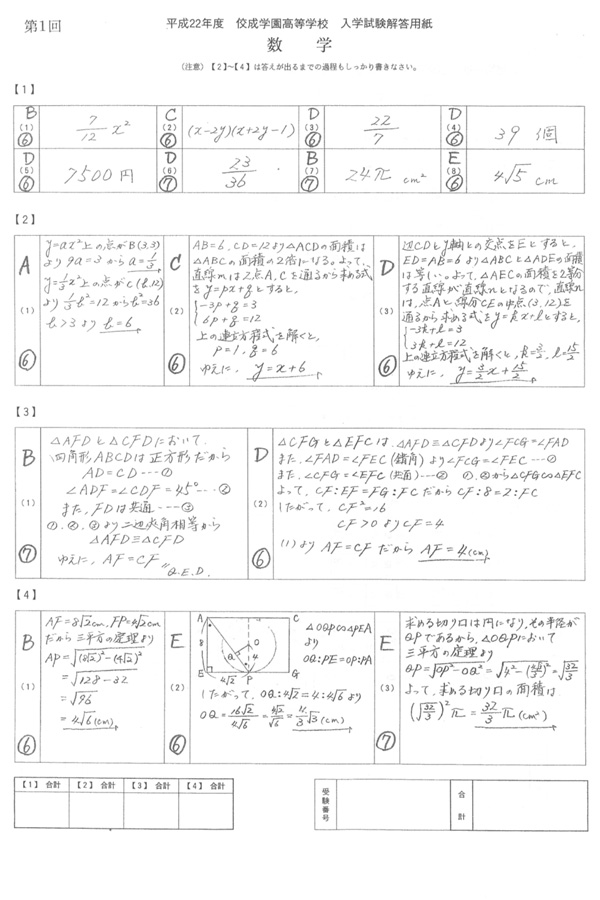 第1回
平成22年度 佼成学園高等学校 入学試験解答用紙
数 学
(注意)【2】~【4】は答えが出るまでの過程もしっかり書きなさい。
【1】
B (1) ⑥ 7/12 x²
C (2) ⑥ (x-2y)(x+2y-1)
D (3) ⑥ 22/7
D (4) ⑥ 39 個
D (5) ⑥ 7500円
D (6) ⑦ 23/36
B (7) ⑦ 24π cm²
E (8) ⑥ 4√5 cm
【2】
A (1) ⑥
y=ax²上の点がB(3,3)
より9a=3からa=1/3
y=1/3x²上の点がC(b,12)
より1/3b²=12からb²=36
b>3よりb=6
C (2) ⑥
AB=6, CD=12より△ACDの面積は
△ABCの面積の2倍になる。よって、
直線mは2点A, Cを通るから求める式
をy=px+qとすると,
{-3p+q=3
6p+q=12
上の連立方程式を解くと,
p=1, q=6
ゆえに, y=x+6
D (3) ⑥
辺CDとy軸との交点をEとすると,
ED=AB=6より△ABCと△ADEの面積
は等しい。よって、△AECの面積を2等分
する直線が直線nとなるので, 直線nは
は, 点Aと線分CEの中点(3,12)を
通るから求める式をy=kx+lとすると,
{-3k+l=3
3k+l=12
上の連立方程式を解くと, k=3/2, l=15/2
ゆえに, y=3/2x+15/2
【3】
B (1) ⑦
△AFDと△CFDにおいて,
四角形ABCDは正方形だから
AD=CD ---①
∠ADF=∠CDF=45° ---②
また, FDは共通 ---③
①, ②, ③より二辺夾角相等から
△AFD≡△CFD
ゆえに, AF=CF
Q.E.D.
D (2) ⑥
△CFGと△EFCは, △AFD≡△CFDより∠FCG=∠FAD
また, ∠FAD=∠FEC(錯角)より∠FCG=∠FEC ---①
また, ∠CFG=∠EFC(共通) ---② ①, ②から△CFG∽△EFC
よって, CF:EF=FG:FCだからCF:8=2:FC
したがって, CF²=16
CF>0よりCF=4
(1)よりAF=CFだからAF=4(cm)
【4】
B (1) ⑥
AF=8√2cm, FP=4√2cm
だから三平方の定理より
AP=√((8√2)²-(4√2)²)
=√(128-32)
=√96
=4√6(cm)
E (2) ⑥
A C 8 O Q 4 E 4√2 P G
△OQP∽△PEA
より
OQ:PE=OP:PA
したがって, OQ:4√2=4:4√6より
OQ=16√2/4√6=4√2/√6=4/3√3(cm)
E (3) ⑦
求める切り口は円になり, その半径が
QPであるから, △OQPにおいて
三平方の定理より
QP=√(OP²-OQ²)=√(4²-(4√3/3)²)=√(32/3)
よって, 求める切り口の面積は
(√(32/3))²π=32/3π(cm²)
【1】合計 【2】合計 【3】合計 【4】合計
受験番号
合計